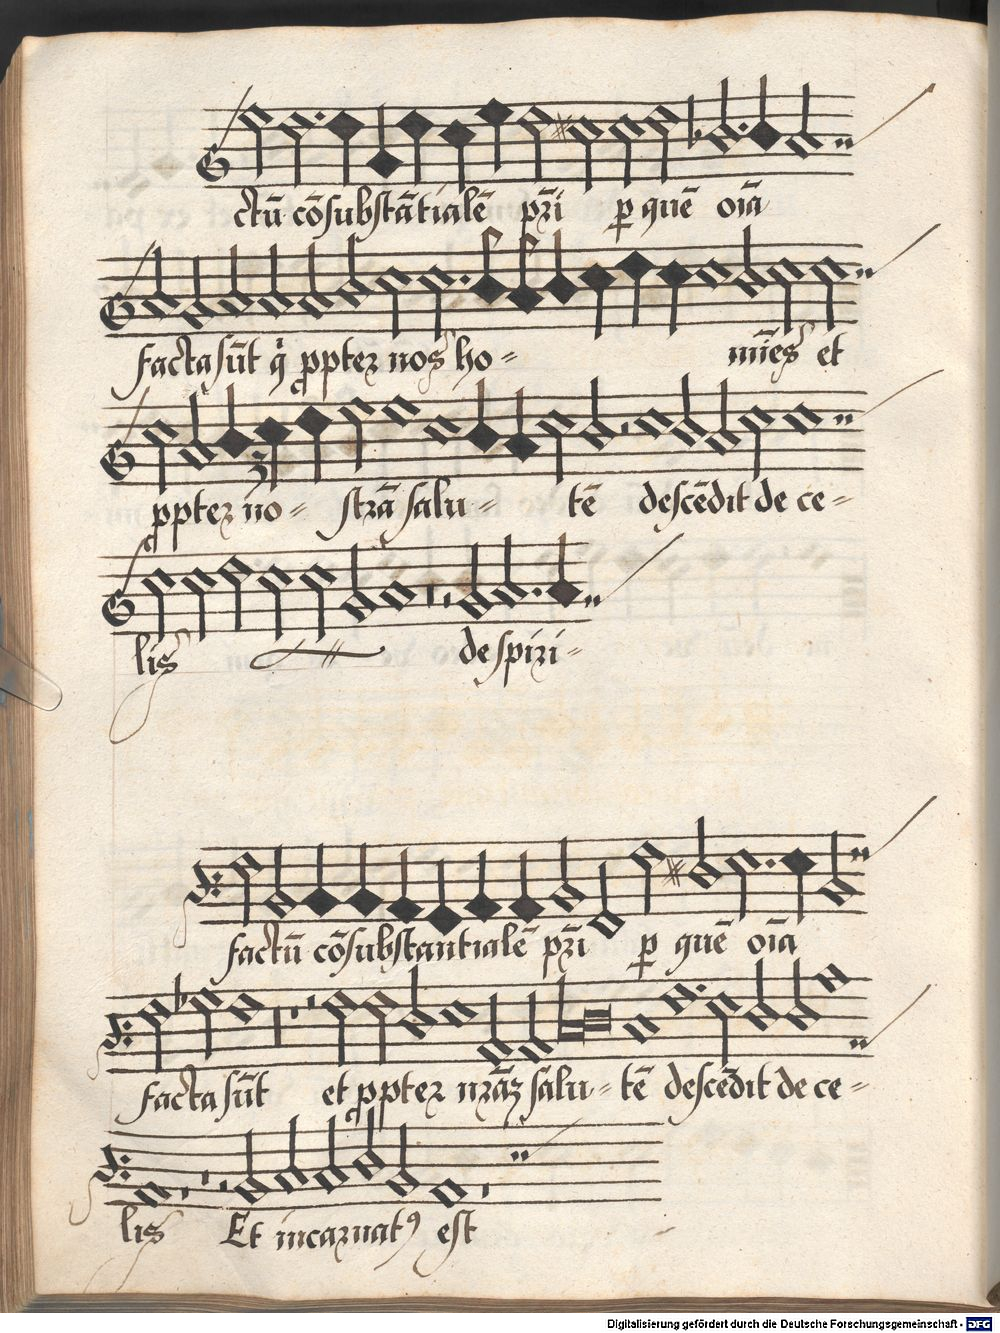 ctū cōsubstātialē pr̄i ꝑ quē oīa
facta sūt q̇ ꝓpter nos ho-  mīes et
ꝓpter no- strā salu- tē descēdit de ce-
lis de spiri-
factū cōsubstantialē pr̄i ꝑ quē oīa
facta sūt et ꝓpter nr̄āꝫ salu- tē descēdit de ce-
lis Et incarnatꝰ est
Digitalisierung gefördert durch die Deutsche Forschungsgemeinschaft - DFG